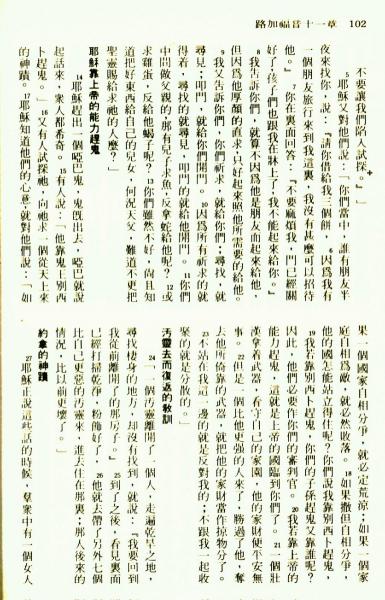 路加福音十一章 102
不要讓我們陷入試探。』」
5耶穌又對他們說:「你們當中,誰有朋友半
夜來找你,說:『請你借給我三個餅,6因爲有
一個朋友旅行來到我這裏,我沒有甚麼可以招待
他。』7你在裏面回答:『不要麻煩我,門已經關
好了,孩子們也跟我在牀上了,我不能起來給你。』
8我告訴你們,就算不因爲他是朋友而起來給他,
但因爲他厚顏的直求,只好起來照他所需要的給他。
9我又告訴你們,你們祈求,就給你們;尋找,就
尋見;叩門,就給你們開門。10因爲所有祈求的就
得着,尋找的就尋見,叩門的就給他開門。11你們
中間做父親的,那有兒子求魚,反拿蛇給他呢?12或
求雞蛋,反給他蠍子呢?13你們雖然不好,尚且知
道把好東西給自己的兒女,何況天父,難道不更把
聖靈賜給求祂的人麼?」
耶穌靠上帝的能力趕鬼
14耶穌趕出一個啞巴鬼,鬼旣出去,啞巴就說
起話來,衆人都希奇。15有人說:「他靠鬼王別西
卜趕鬼。」16又有人試探祂,向祂求一個從天上來
的神蹟。17耶穌知道他們的心意,就對他們說:「如
果一個國家自相紛爭,就必然定荒涼;如果一個家
庭自相紛爭,就必然敗落。18如果撒但自相分爭,
他的國怎能站立得住呢?你們說我靠別西卜趕鬼,
19我若靠別西卜趕鬼,你們的子孫趕鬼又靠誰呢?
因此,他們必要作你們的審判官。20我若靠上帝的
能力趕鬼,這就是上帝的國臨到你們了。21一個壯
漢拿着武器,看守自己的家園,他的家財便平安無
事。22但是一個比他更强的人來了,勝過了他,奪
去他所倚靠的武器,就把他的家財當作掠物分了。
23不站在我這一邊的就是反對我的;不跟我一起收
聚的就是分散的。」
汚靈去而復返的教訓
24「一個汚靈離開了一個人,走遍乾旱之地,
尋找棲身的地方,却沒有找到,就說:『我要回到
我從前離開了的那房子。』25到了之後,看見裏面
已經打掃乾淨,粉飾好了,26他就去帶了另外七個
比自己更惡的汚靈來,進去住在那裏;那人後來的
情況,比以前更壞了。」
約拿的神蹟
27耶穌正說這些話的時候,羣衆中有一個女人